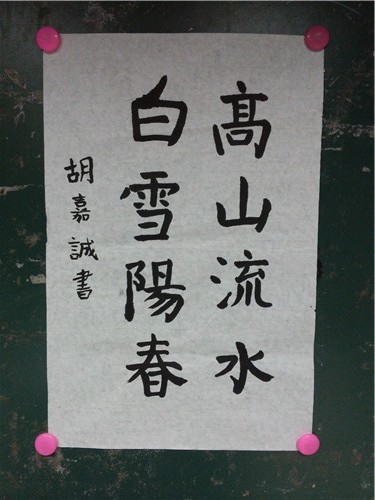 髙山流水
白雪陽春
胡嘉誠書